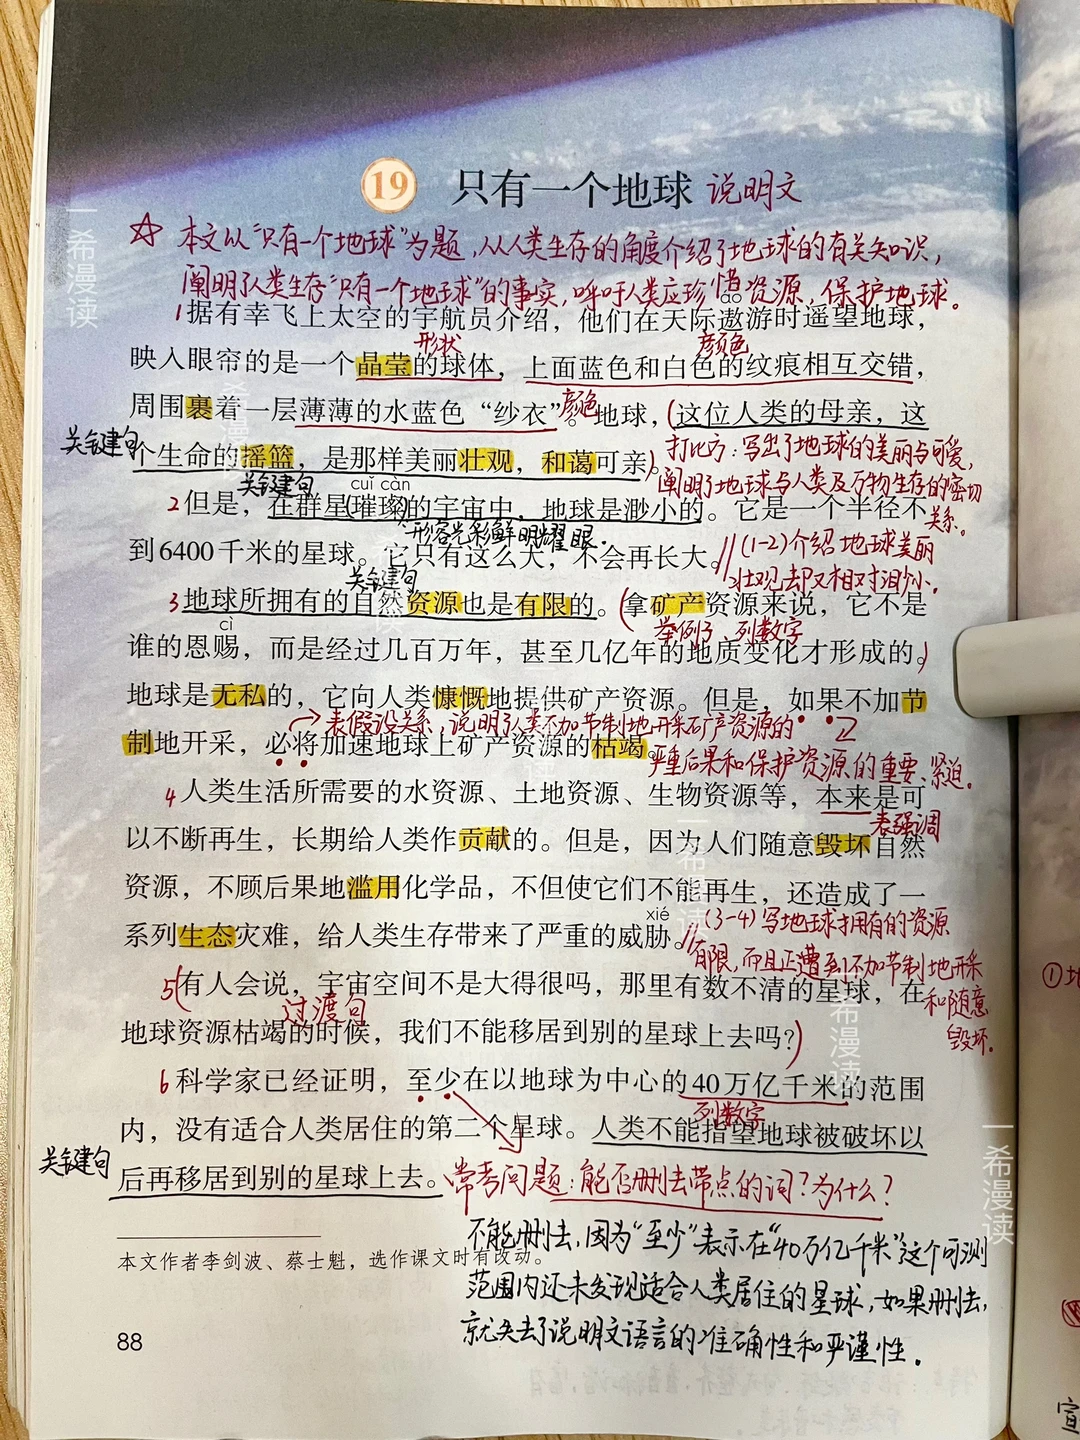 19 只有一个地球 说明文
☆ 本文以"只有一个地球"为题,从人类生存的角度介绍了地球的有关知识,
阐明了人类生存"只有一个地球"的事实,呼吁人类应珍惜资源,保护地球。
áo
1据有幸飞上太空的宇航员介绍，他们在天际遨游时遥望地球，
形状 颜色
映入眼帘的是一个晶莹的球体，上面蓝色和白色的纹痕相互交错，
周围裹着一层薄薄的水蓝色“纱衣”。颜色 地球，(这位人类的母亲，这
关键句
个生命的摇篮，是那样美丽壮观，和蔼可亲。)
打比方:写出了地球的美丽与可爱,
阐明了地球与人类及万物生存的密切
关系。
关键句 cuǐ càn
2但是，在群星(璀璨)的宇宙中，地球是渺小的。它是一个半径不
形容光彩鲜明耀眼.
到6400千米的星球。它只有这么大，不会再长大。//
(1-2)介绍地球美丽
壮观却又相对渺小.
关键句
3地球所拥有的自然资源也是有限的。(拿矿产资源来说，它不是
cì 举例子 列数字
谁的恩赐，而是经过几百万年，甚至几亿年的地质变化才形成的。)
地球是无私的，它向人类慷慨地提供矿产资源。但是，如果不加节
→表假设关系,说明了人类不加节制地开采矿产资源的
制地开采，必将加速地球上矿产资源的枯竭。
严重后果和保护资源的重要、紧迫.
4人类生活所需要的水资源、土地资源、生物资源等，本来是可
表强调
以不断再生，长期给人类作贡献的。但是，因为人们随意毁坏自然
资源，不顾后果地滥用化学品，不但使它们不能再生，还造成了一
xié
系列生态灾难，给人类生存带来了严重的威胁。//
(3-4)写地球拥有的资源
有限,而且正遭到不加节制地开采
和随意
毁坏.
5(有人会说，宇宙空间不是大得很吗，那里有数不清的星球，在
过渡句
地球资源枯竭的时候，我们不能移居到别的星球上去吗？)
6科学家已经证明，至少在以地球为中心的40万亿千米的范围
列数字
内，没有适合人类居住的第二个星球。人类不能指望地球被破坏以
关键句
后再移居到别的星球上去。
常考问题:能否删去带点的词?为什么?
不能删去,因为"至少"表示在"40万亿千米"这个可测
范围内还未发现适合人类居住的星球,如果删去,
就失去了说明文语言的准确性和严谨性.
本文作者李剑波、蔡士魁，选作课文时有改动。
88
①地
宣
一希漫读
一希漫读
一希漫读
一希漫读
一希漫读